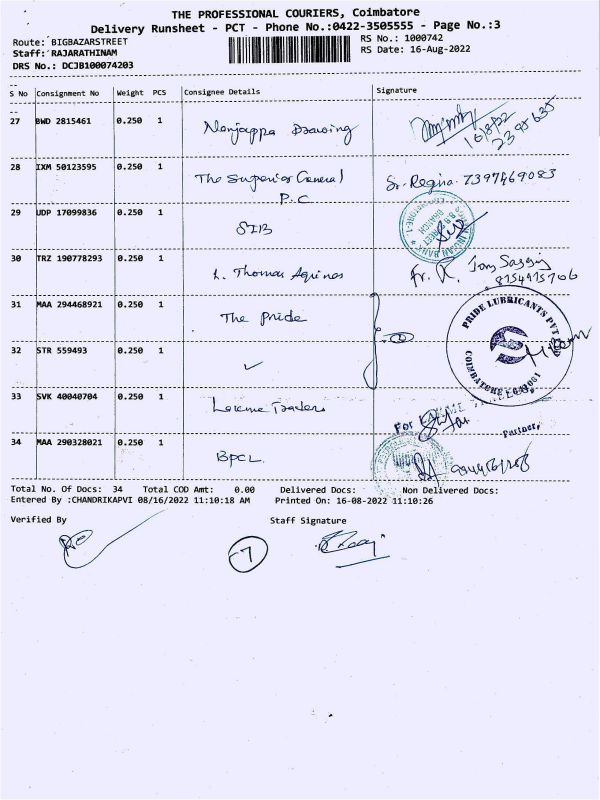 THE PROFESSIONAL COURIERS, Coimbatore
Delivery Runsheet - PCT - Phone No.:0422-3505555 - Page No.:3
Route: BIGBAZARSTREET
RS No.: 1000742
Staff: RAJARATHINAM
RS Date: 16-Aug-2022
DRS No.: DCJB100074203
S No Consignment No Weight PCS Consignee Details Signature
27 BWD 2815461 0.250 1 Nanjappa Drawing 16/8/22
28 IXM 50123595 0.250 1 The Superior General P.C Sr. Regina 7397469083
29 UDP 17099836 0.250 1 SIB
30 TRZ 190778293 0.250 1 L. Thomas Aquinas Fr. K.
31 MAA 294468921 0.250 1 The Pride
PRIDE LUBRICANTS PVT
COIMBATORE
32 STR 559493 0.250 1 ✓
33 SVK 40040704 0.250 1 Lakme Traders
For
Partner,
34 MAA 290328021 0.250 1 BPCL
Total No. Of Docs: 34 Total COD Amt: 0.00 Delivered Docs: Non Delivered Docs:
Entered By :CHANDRIKAPVI 08/16/2022 11:10:18 AM Printed On: 16-08-2022 11:10:26
Verified By Staff Signature
7